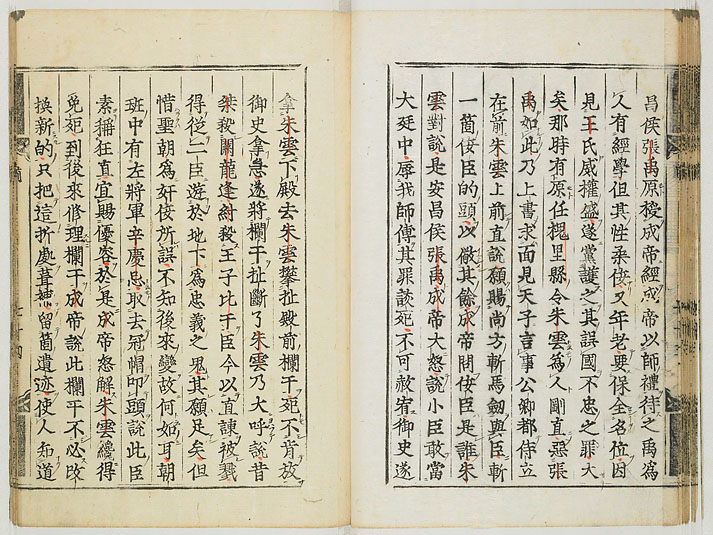 昌侯張禹原授成帝經成帝以師禮待之禹爲
人有經學但其性柔佞又年老要保全名位因
見王氏威權盛遂黨護之其誤國不忠之罪大
矣那時有原任槐里縣令朱雲爲人剛直惡張
禹如此乃上書求面見天子言事公卿都侍立
在前朱雲上前直說願賜尚方斬馬劍與臣斬
一箇佞臣的頭以儆其餘成帝問佞臣是誰朱
雲對說是安昌侯張禹成帝大怒說小臣敢當
大廷中辱我師傅其罪該死不可赦宥御史遂
拿朱雲下殿去朱雲攀扯殿前欄干死不肯放
御史拿急遂將欄干扯斷了朱雲乃大呼說昔
桀殺關龍逢紂殺王子比干臣今以直諫被戮
得從二臣遊於地下爲忠義之鬼其願足矣但
惜聖朝爲奸佞所誤不知後來變故何如耳朝
班中有左將軍辛慶忌取去冠帽叩頭說此臣
素稱狂直宜賜優容於是成帝怒解朱雲纔得
免死到後來修理欄干成帝說此欄干不必改
換新的只把這折處葺補留箇遺迹使人知道